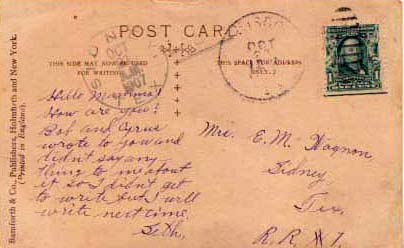 POST CARD
THIS SIDE MAY NOW BE USED
FOR WRITING
THIS SPACE FOR ADDRESS
ONLY.
Bamforth & Co., Publishers, Holmfirth and New York.
(Printed in England).
OCT
1907
1
Hello Mamma!
How are you?
Bob and Cyrus
wrote to you and
didn't say any
thing to me about
it so I didn't get
to write but I will
write next time.
Seth,
Mrs. E. M. Hagnon,
Sidney,
Tex.
R. R. #1